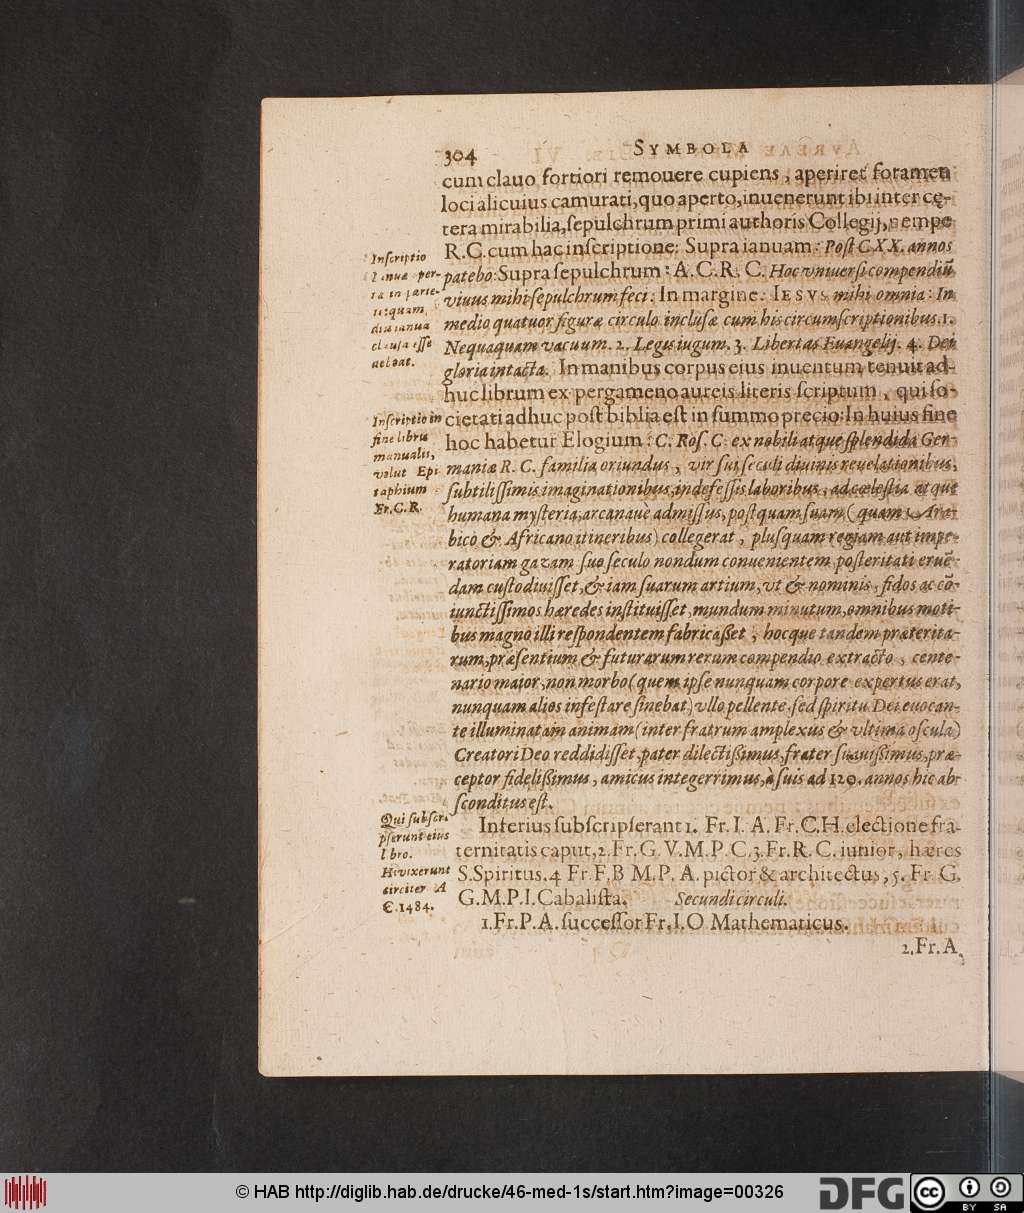 304 SYMBOLA
cum clauo fortiori remouere cupiens, aperiret foramen
loci alicuius camurati, quo aperto, inuenerunt ibi inter cę-
tera mirabilia, sepulchrum primi authoris Collegij, nempe
R.C. cum hac inscriptione: Supra ianuam: Post CXX. annos
patebo: Supra sepulchrum: A.C.R.C. Hoc vniuersi compendiũ
viuus mihi sepulchrum feci. In margine: IESVS mihi omnia: In
medio quatuor figuræ circulo inclusæ cum his circumscriptionibus. 1.
Nequaquam vacuum. 2. Legis iugum. 3. Libertas Euangelij. 4. Dei
gloria intacta. In manibus corpus eius inuentum tenuit ad-
huc librum ex pergameno aureis literis scriptum, qui so-
cietati adhuc post biblia est in summo precio: In huius fine
hoc habetur Elogium: C. Ros. C. ex nobili atque splendida Ger-
maniæ R. C. familia oriundus, vir sui seculi diuinis reuelationibus,
subtilissimis imaginationibus, indefessis laboribus, ad cœlestia atque
humana mysteria, arcanaue admissus, postquam suam (quam Ara-
bico & Africano itineribus) collegerat, plusquam regiam aut impe-
ratoriam gazam suo seculo nondum conuenientem, posteritati eruẽ-
dam custodiuisset, & iam suarum artium, vt & nominis, fidos ac cõ-
iunctissimos hæredes instituisset, mundum minutum, omnibus moti-
bus magno illi respondentem fabricasset, hocque tandem præterita-
rum, præsentium & futurarum rerum compendio extracto, cente-
nario maior, non morbo (quem ipse nunquam corpore expertus erat,
nunquam alios infestare sinebat) vllo pellente, sed spiritu Dei euocan-
te illuminatam animam (inter fratrum amplexus & vltima oscula)
Creatori Deo reddidisset, pater dilectissimus, frater suauissimus, præ-
ceptor fidelissimus, amicus integerrimus, à suis ad 120. annos hic ab
sconditus est.
Inferius subscripserant 1. Fr. I. A. Fr. C.H. electione fra-
ternitatis caput, 2. Fr. G.V.M.P.C. 3. Fr. R.C. iunior, hæres
S. Spiritus. 4 Fr F.B M.P. A. pictor & architectus, 5. Fr G.
G.M.P.I. Cabalista. Secundi circuli.
1. Fr. P. A. successor Fr. I.O Mathematicus.
2. Fr. A.
Inscriptio
Ianuæ per-
ta in parte-
diu ianua
clausa esse
debeat.
Inscriptio in
fine libri
manualis,
velut Epi
taphium
Fr. C. R.
Qui subscri
pserunt eius
libro.
Hi vixerunt
circiter A
C. 1484.
© HAB http://diglib.hab.de/drucke/46-med-1s/start.htm?image=00326
DFG
cc
BY SA